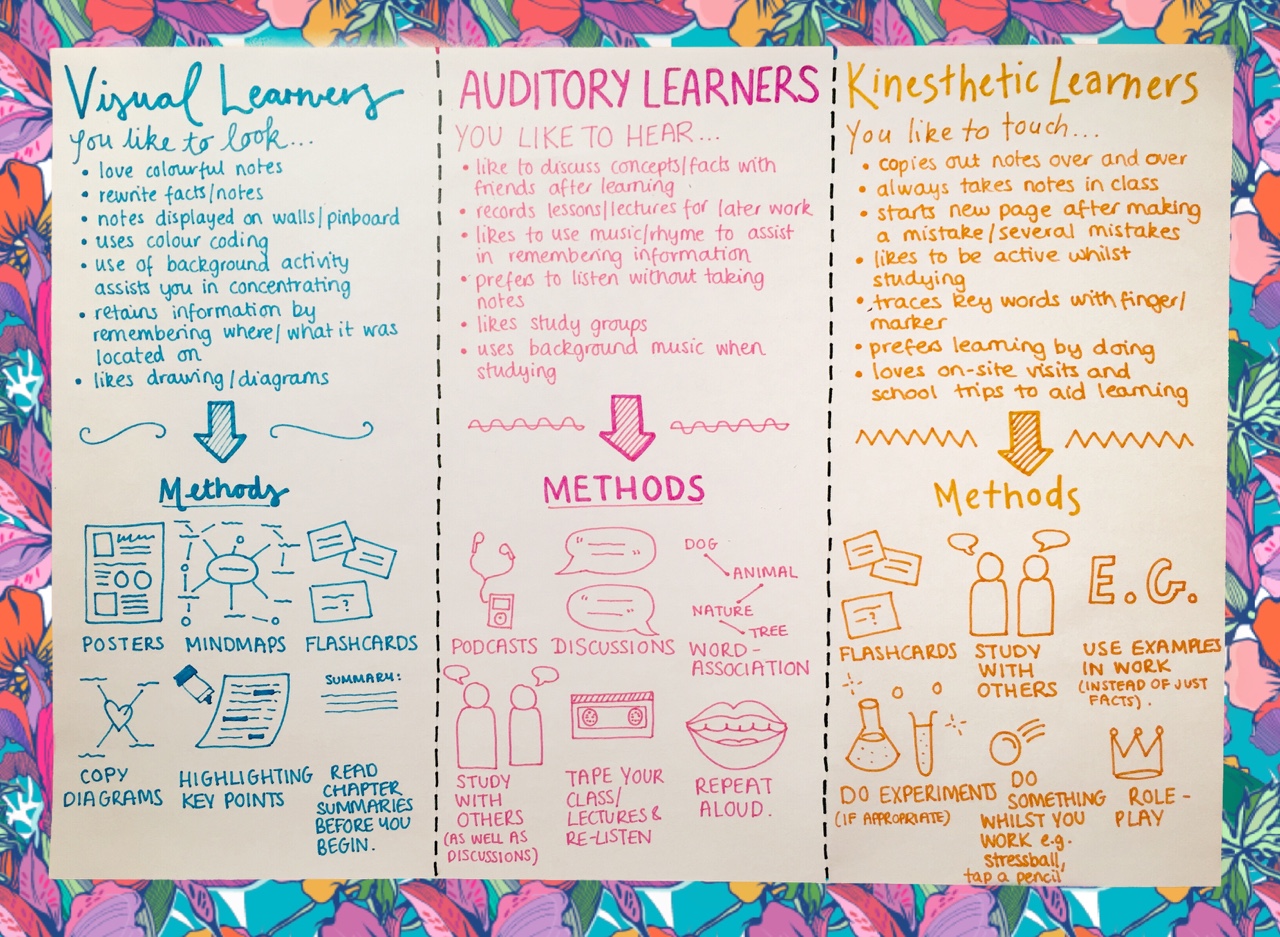 Visual Learners
you like to look...
• love colourful notes
• rewrite facts/notes
• notes displayed on walls/pinboard
• uses colour coding
• use of background activity
assists you in concentrating
• retains information by
remembering where/what it was
located on
• likes drawing/diagrams
Methods
POSTERS
MINDMAPS
FLASHCARDS
?
SUMMARY:
COPY
DIAGRAMS
HIGHLIGHTING
KEY POINTS
READ
CHAPTER
SUMMARIES
BEFORE YOU
BEGIN.
AUDITORY LEARNERS
YOU LIKE TO HEAR...
• like to discuss concepts/facts with
friends after learning
• records lessons/lectures for later work
• likes to use music/rhyme to assist
in remembering information
• prefers to listen without taking
notes
• likes study groups
• uses background music when
studying
METHODS
PODCASTS
DISCUSSIONS
DOG
ANIMAL
NATURE
TREE
WORD-
ASSOCIATION
STUDY
WITH
OTHERS
(AS WELL AS
DISCUSSIONS)
TAPE YOUR
CLASS/
LECTURES &
RE-LISTEN
REPEAT
ALOUD.
Kinesthetic Learners
You like to touch...
• copies out notes over and over
• always takes notes in class
• starts new page after making
a mistake/several mistakes
• likes to be active whilst
studying
• traces key words with finger/
marker
• prefers learning by doing
• loves on-site visits and
school trips to aid learning
Methods
?
FLASHCARDS
STUDY
WITH
OTHERS
E.G.
USE EXAMPLES
IN WORK
(INSTEAD OF JUST
FACTS).
DO EXPERIMENTS
(IF APPROPRIATE)
DO
SOMETHING
WHILST YOU
WORK e.g.
stressball,
tap a pencil
ROLE-
PLAY